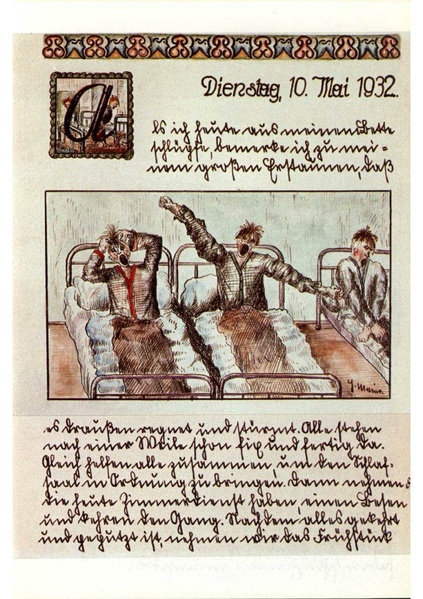 Dienstag, 10. Mai 1932.
Als ich heute aus meinem Bette
schlüpfe, bemerke ich zu mei-
nem großen Erstaunen, daß
J. Maier.
es draußen regnet und stürmt. Alle stehen
nach einer Weile schon fix und fertig da.
Gleich helfen alle zusammen, um den Schlaf-
saal in Ordnung zu bringen. Dann nehmen
die heute Zimmerdienst haben, einen Besen
und kehren den Gang. Nachdem alles gekehrt
und geputzt ist, nehmen wir das Frühstück